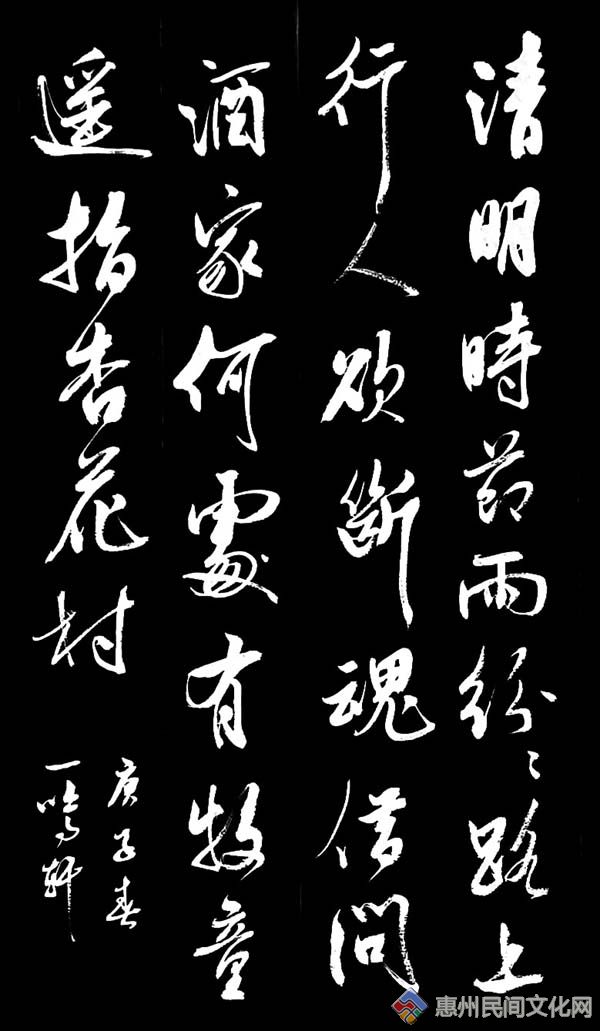 清明時節雨紛〻路上
行人欲斷魂借問
酒家何處有牧童
遥指杏花村
庚子春
一鳴軒
惠州民间文化网